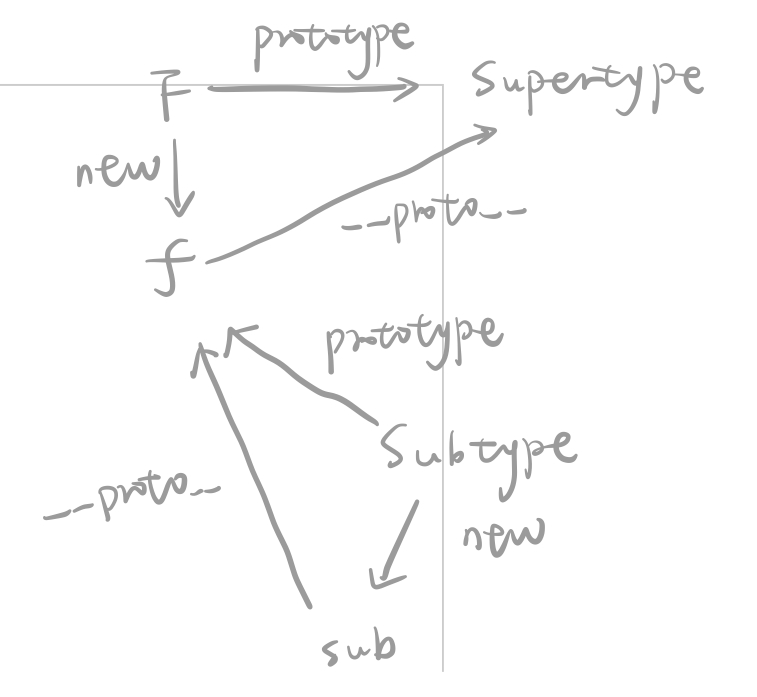 prototype
F
Supertype
new
__proto__
f
prototype
Subtype
__proto_
new
sub